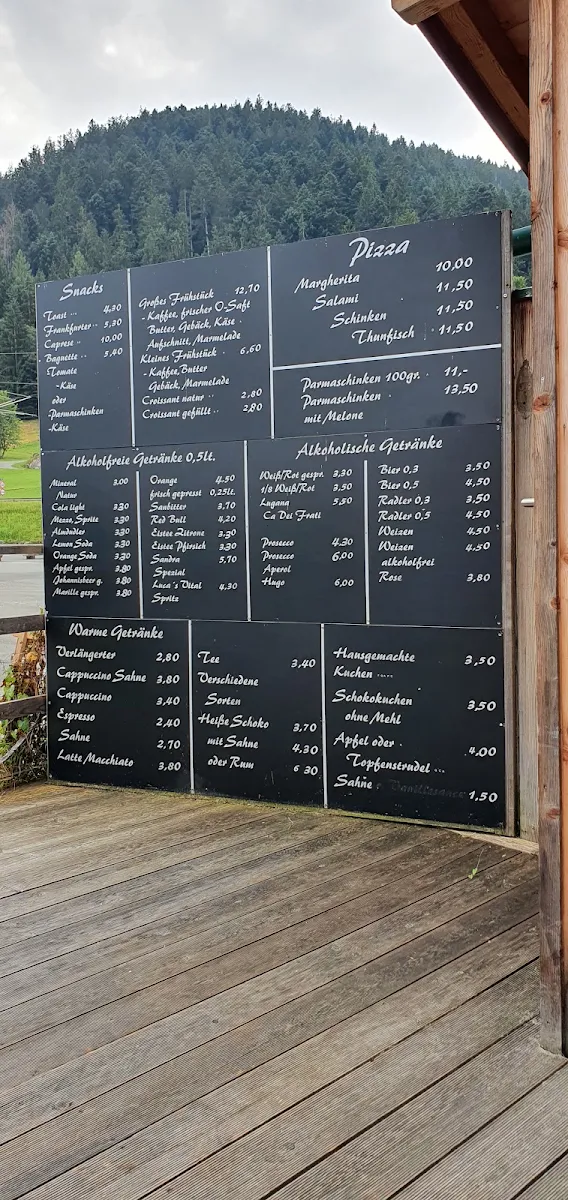 Snacks
Toast 4,30
Frankfurter 5,30
Caprese 10,00
Bagnette 5,40
Tomate
-Käse
oder
-Parmaschinken
-Käse
Großes Frühstück 12,70
-Kaffee, frischer O-Saft
Butter, Gebäck, Käse
Aufschnitt, Marmelade
Kleines Frühstück 6,60
-Kaffee, Butter
Gebäck, Marmelade
Croissant natur 2,80
Croissant gefüllt 2,80
Pizza
Margherita 10,00
Salami 11,50
Schinken 11,50
Thunfisch 11,50
Parmaschinken 100gr. 11,-
Parmaschinken 13,50
mit Melone
Alkoholfreie Getränke 0,5lt.
Mineral 3,00
Natur
Cola light 3,30
Mezzo, Sprite 3,30
Almdudler 3,30
Lemon Soda 3,30
Orange Soda 3,30
Apfel gespr. 3,80
Johannisbeer g. 3,80
Marille gespr. 3,80
Orange 4,50
frisch gepresst 0,25lt.
Saubitter 3,70
Red Bull 4,20
Eistee Zitrone 3,30
Eistee Pfirsich 3,30
Sandra 5,70
Spezial
Luca´s Vital 4,30
Spritz
Alkoholische Getränke
Weiß/Rot gespr. 3,30
1/8 Weiß/Rot 3,50
Lugana 5,50
Ca Dei Frati
Prosecco 4,30
Prosecco 6,00
Aperol
Hugo 6,00
Bier 0,3 3,50
Bier 0,5 4,50
Radler 0,3 3,50
Radler 0,5 4,50
Weizen 4,50
Weizen 4,50
alkoholfrei
Rose 3,80
Warme Getränke
Verlängerter 2,80
Cappuccino Sahne 3,80
Cappuccino 3,40
Espresso 2,40
Sahne 2,70
Latte Macchiato 3,80
Tee 3,40
Verschiedene
Sorten
Heiße Schoko 3,70
mit Sahne 4,30
oder Rum 6 30
Hausgemachte 3,50
Kuchen
Schokokuchen 3,50
ohne Mehl
Apfel oder 4,00
Topfenstrudel
Sahne Vanillesauce 1,50